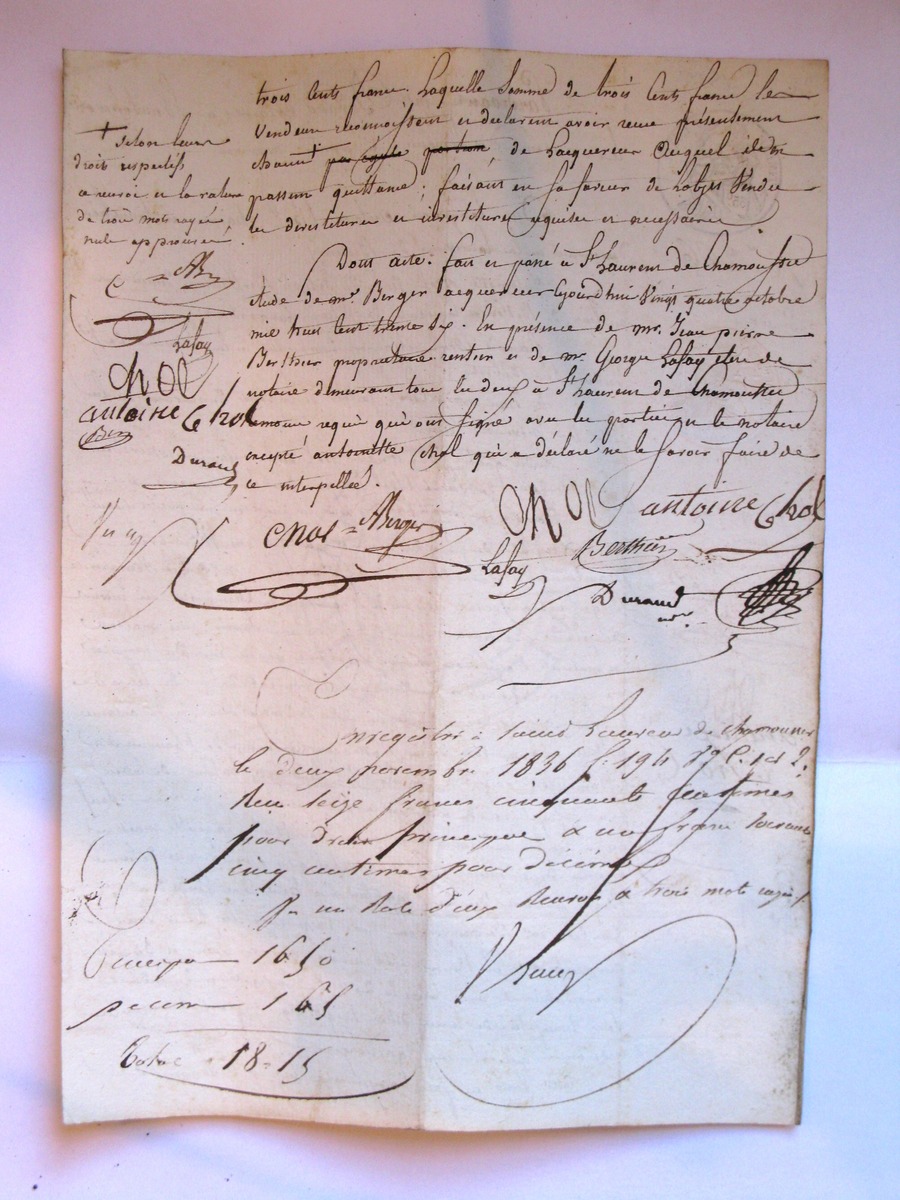 trois cents francs. Laquelle somme de trois cents francs les
vendeurs reconnoissent et déclarent avoir reçue présentement
chacun + par égale portion de l'acquereur auquel ils en
passent quittance ; faisant en sa faveur de l'objet vendu
les devestitures et investitures requises et nécessaires
Dont acte. fait et passé à St Laurent de Chamousset
étude de me. Berger acquereur aujourd'hui vingt quatre octobre
mil huit cent trente six. En présence de mr. Jean pierre
Berthier propriétaire rentier et de mr. George Lafay clerc de
notaire demeurant tous les deux à St Laurent de Chamousset
témoins requis qui ont signé avec les parties et le notaire
excepté antoinette Chol qui a déclaré ne le savoir faire de
ce interpellée.
+ selon leurs
droits respectifs
ce renvoi et la rature
de trois mots rayés
nuls approuvés
Lafay
Chol
antoine Chol
Ber
Durand
Chol = Berger
Chol
antoine Chol
Lafay
Berthier
Durand
Enregistré à Saint Laurent de chamousset
le deux novembre 1836 f. 194 c. 1 et 2.
Reçu seize francs cinquante centimes
pour droit principal & un franc soixante
cinq centimes pour décime
un Role deux Renvois & trois mots rayés
Principal 16 50
decime 1 65
Total = 18 = 15